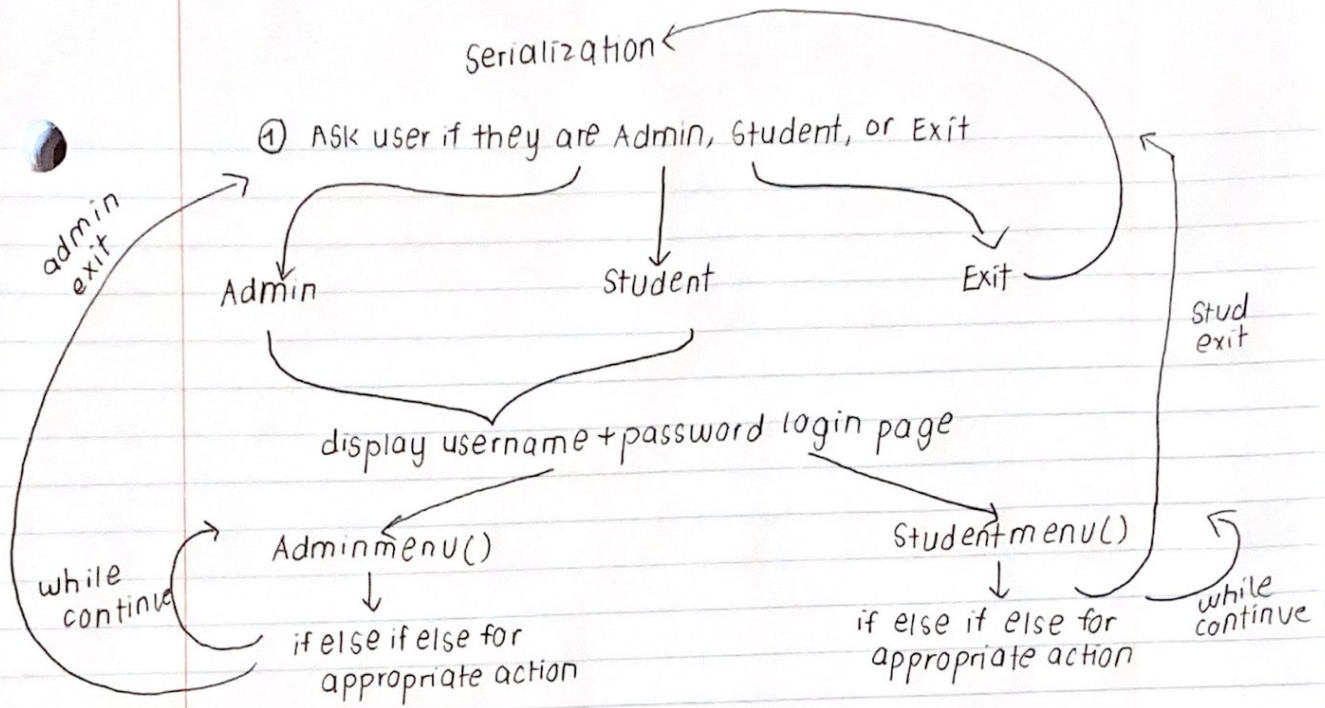 Serialization
① Ask user if they are Admin, Student, or Exit
admin
exit
Admin
Student
Exit
Stud
exit
display username+password login page
Adminmenu()
Studentmenu()
while
continue
if else if else for
appropriate action
if else if else for
appropriate action
while
continue